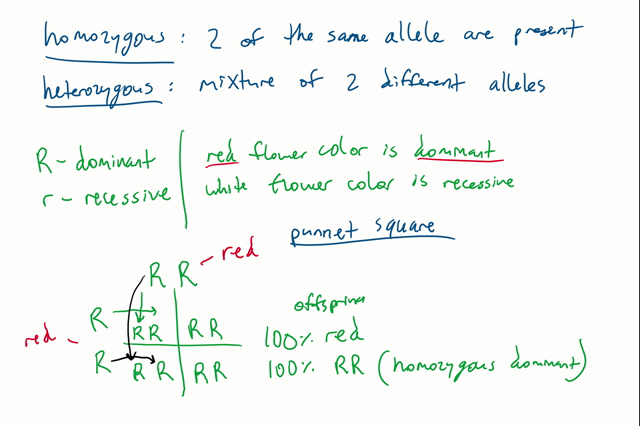 homozygous : 2 of the same allele are present
heterozygous : mixture of 2 different alleles
R - dominant
r - recessive
red flower color is dominant
white flower color is recessive
punnet square
R R - red
R
RR RR
red -
R
RR RR
offsprin
100% red
100% RR (homozygous dominant)